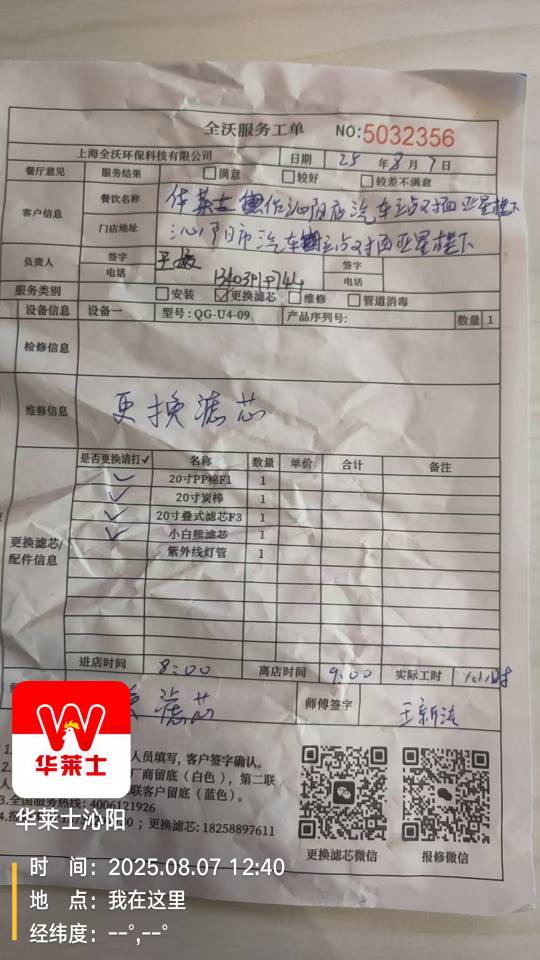 全沃服务工单 NO:5032356
上海全沃环保科技有限公司 日期 25 年 8 月 7 日
餐厅意见 服务结果 满意 较好 较差不满意
客户信息 餐饮名称 华莱士 沁阳店汽车站对面亚星楼下
门店地址 沁阳市汽车站对面亚星楼下
负责人 签字 王 签字
电话 电话
服务类别 安装 更换滤芯 维修 管道消毒
设备信息 设备一 型号:QG-U4-09 产品序列号: 数量 1
检修信息
维修信息 更换滤芯
是否更换请打✓ 名称 数量 单价 合计 备注
✓ 20寸PP棉F1 1
✓ 20寸炭棒 1
✓ 20寸叠式滤芯F3 1
✓ 小白熊滤芯 1
紫外线灯管 1
更换滤芯/
配件信息
进店时间 8:00 离店时间 9:00 实际工时 1小时
换滤芯 师傅签字 王新法
1.
人员填写,客户签字确认。
2.
厂商留底(白色),第二联
联客户留底(蓝色)。
3.全国服务热线: 4006121926
4. ;更换滤芯: 18258897611
更换滤芯微信 报修微信
W
华莱士
华莱士沁阳
时 间: 2025.08.07 12:40
地 点: 我在这里
经纬度: --°,--°